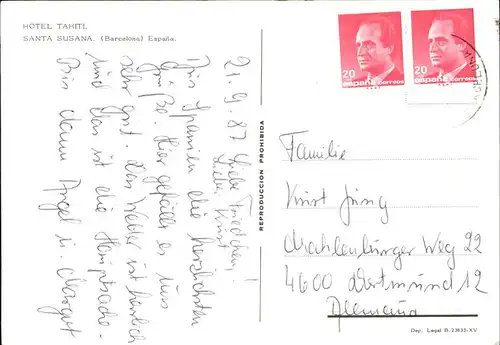 HOTEL TAHITI.
SANTA SUSANA. (Barcelona) España.
21.9.87 Liebe Friedchen!
Lieber Kurt!
Aus Spanien die herzlichsten
Grüße. Hier gefällt es uns
sehr gut. Das Wetter ist herrlich
und das ist die Hauptsache.
Bis dann u. Margot
REPRODUCCION PROHIBIDA
20
españa
correos
20
españa
correos
Familie
Kurt Jung
Mahlenburger Weg 22
4600 Dortmund 12
Alemania
Dep. Legal B. 23833-XV